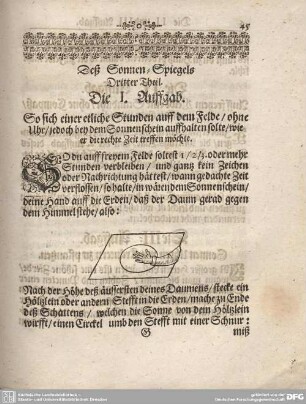 o
45
Deß Sonnen-Spiegels
Dritter Theil.
Die I. Auffgab.
So sich einer etliche Stunden auff dem Felde / ohne
Uhr / jedoch bey dem Sonnenschein auffhalten solte / wie
er die rechte Zeit treffen möchte.
SO du auff freyem Felde soltest 1/2/3. oder mehr
Stunden verbleiben / und gantz kein Zeichen
oder Nachrichtung hättest / wann gedachte Zeit
verflossen / so halte / in wären dem Sonnenschein /
deine Hand auff die Erden / daß der Daum gerad gegen
dem Himmel stehe / also:
Nach der Höhe deß äussersten deines Daumens / stecke ein
Höltzlein oder andern Stefft in die Erden / mache zu Ende
deß Schattens / welchen die Sonne von dem Höltzlein
wirfft / einen Circkel umb den Stefft mit einer Schnur:
G
miß
DFG